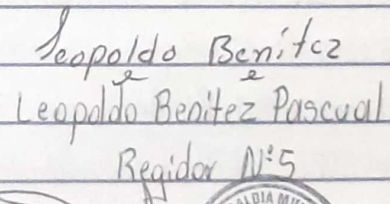 Leopoldo Benítez
Leopoldo Benitez Pascual
Regidor Nº5
ALDIA MU